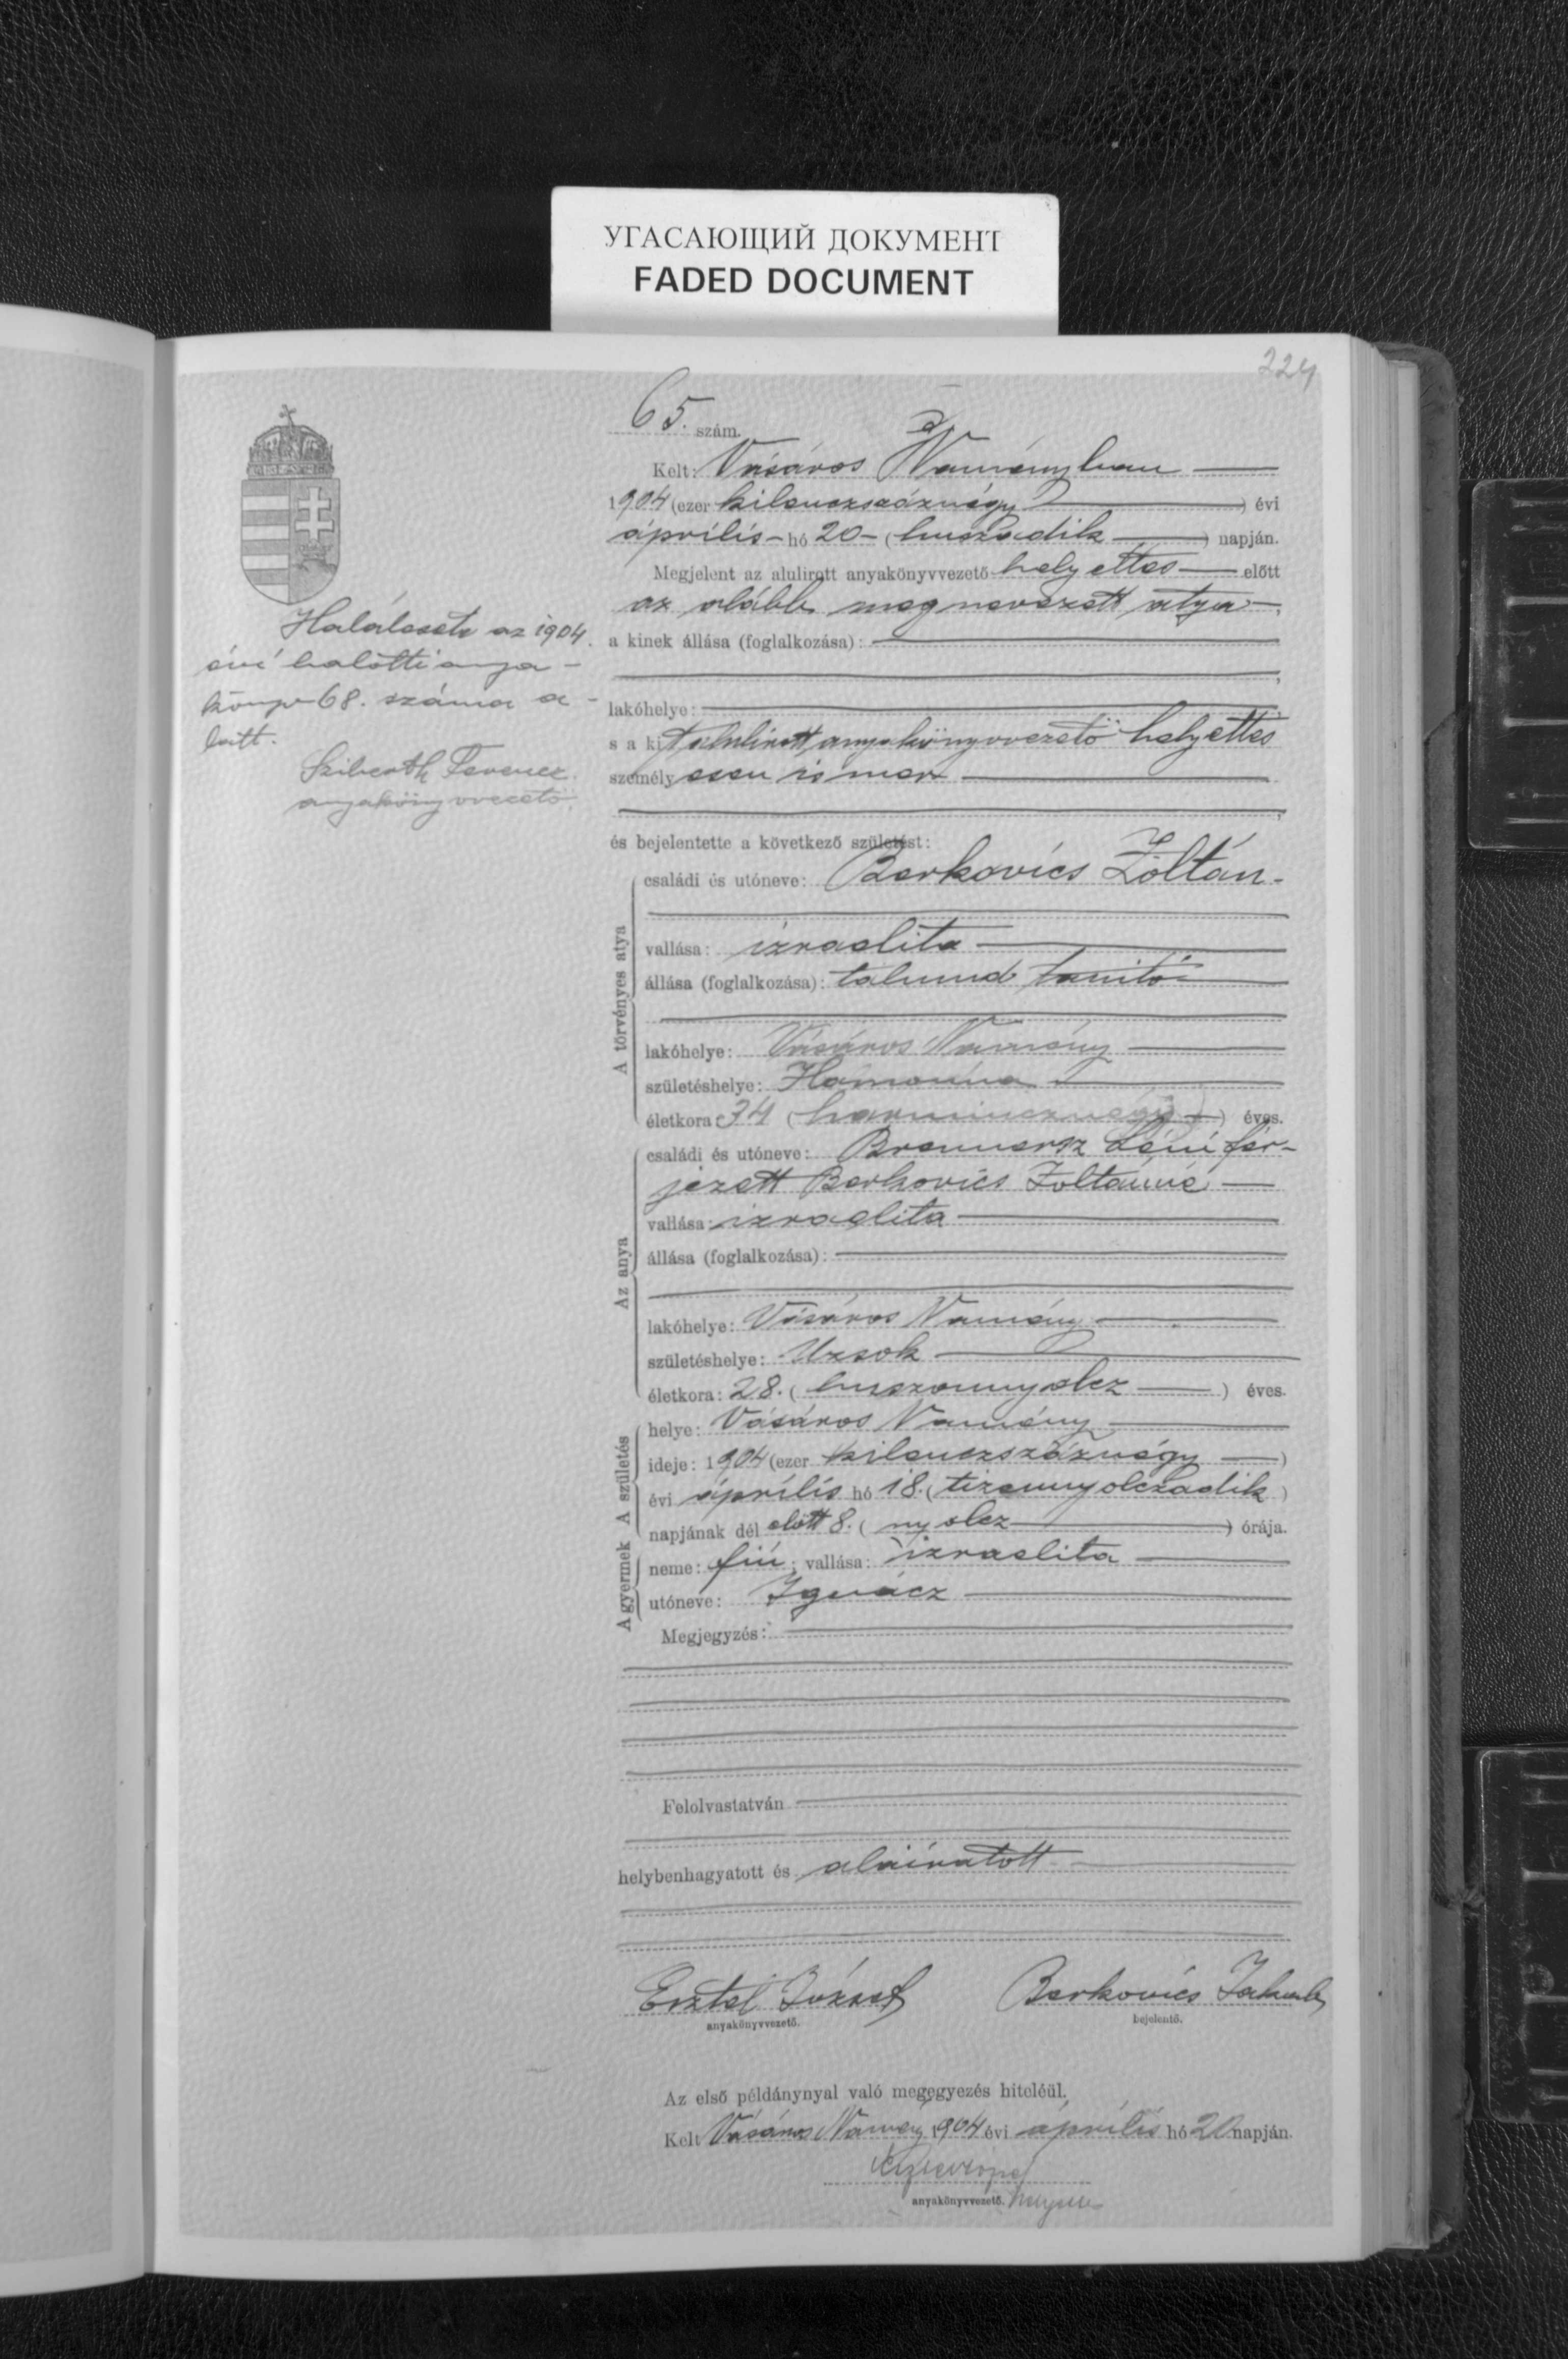 УГАСАЮЩИЙ ДОКУМЕНТ
FADED DOCUMENT
224
65. szám.
Kelt: Vásáros Naményban
1904 (ezer kilenczszáznégy) évi
április hó 20 (huszadik) napján.
Megjelent az alulirott anyakönyvvezető helyettes előtt
az alább megnevezett atya,
a kinek állása (foglalkozása):
lakóhelye:
s a kit alulirott anyakönyvvezető helyettes
személyesen ismer
és bejelentette a következő születést:
Haláleseti az 1904.
évi halotti anya-
könyv 68. száma a-
latt.
Sziberth Ferencz
anyakönyvvezető.
A törvényes atya
családi és utóneve: Berkovics Zoltán
vallása: izraelita
állása (foglalkozása): talmud tanító
lakóhelye: Vásáros Namény
születéshelye: Homonna
életkora: 34 (harmincznégy) éves.
Az anya
családi és utóneve: Léni fér-
jezett Berkovics Zoltánné
vallása: izraelita
állása (foglalkozása):
lakóhelye: Vásáros Namény
születéshelye: Uzsok
életkora: 28. (huszonnyolcz) éves.
A születés
helye: Vásáros Namény
ideje: 1904 (ezer kilenczszáznégy)
évi április hó 18. (tizennyolczadik)
napjának dél előtt 8. (nyolcz) órája.
A gyermek
neme: fiú; vallása: izraelita
utóneve: Ignácz
Megjegyzés:
Felolvastatván
helybenhagyatott és aláiratott
József
anyakönyvvezető.
Berkovics Jakab
bejelentő.
Az első példánynyal való megegyezés hiteléül.
Kelt Vásáros Namény 1904 évi április hó 20 napján.
anyakönyvvezető. helyettes